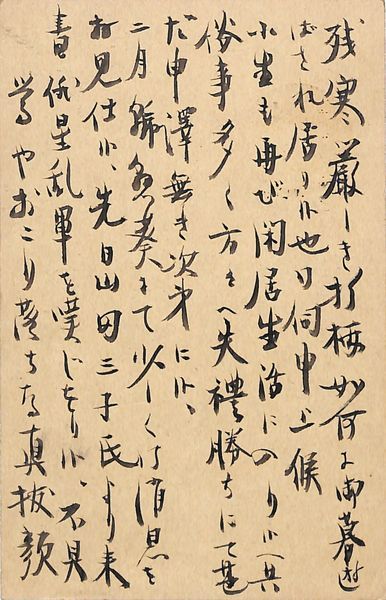 残寒厳しき折柄如何に御暮遊
ばされ居り候也御伺申上候
小生も再び閑居生活に入り候へ共
俗事多く方々へ失禮勝ちにて甚
だ申澤無き次第に候、
二月号にて少しく御消息を
お見仕候、先日山田三子氏より来
書俳星乱軍を嘆じをり候、不具
鶯やおこり落ちたる真披顔